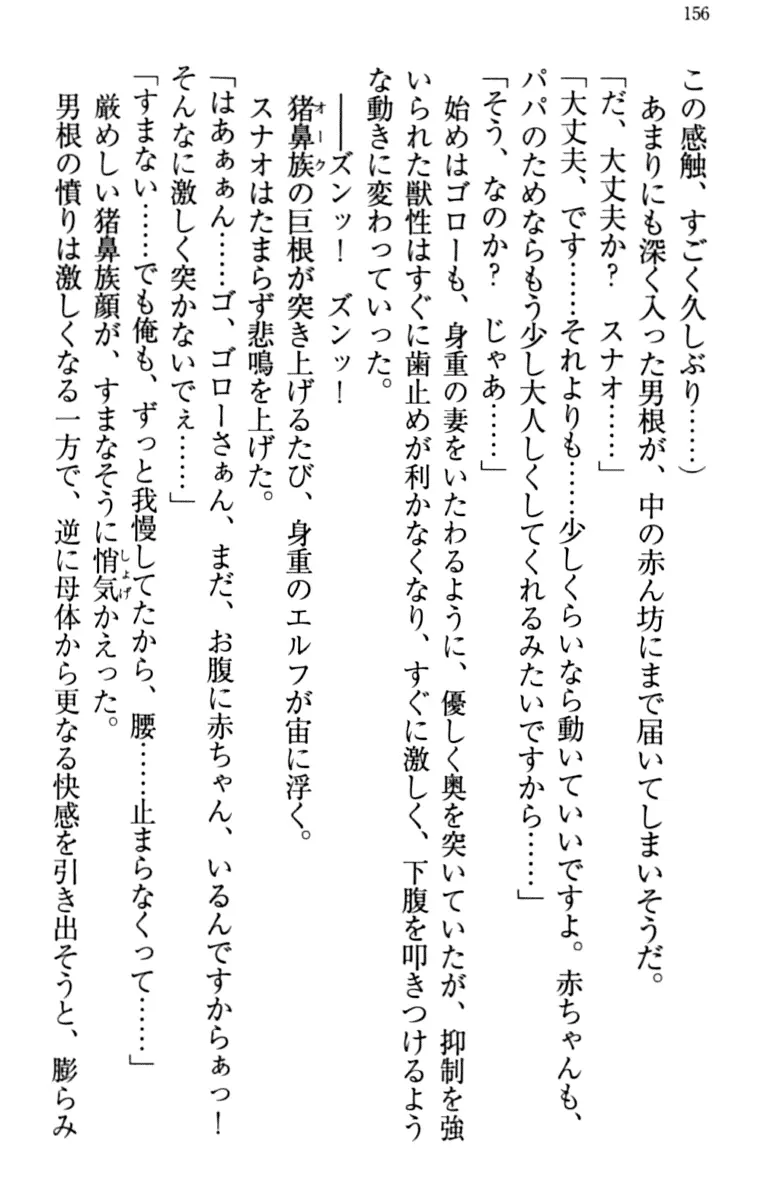 156
この感触、すごく久しぶり……)
あまりにも深く入った男根が、中の赤ん坊にまで届いてしまいそうだ。
「だ、大丈夫か？　スナオ……」
「大丈夫、です……それよりも……少しくらいなら動いていいですよ。赤ちゃんも、
パパのためならもう少し大人しくしてくれるみたいですから……」
「そう、なのか？　じゃあ……」
始めはゴローも、身重の妻をいたわるように、優しく奥を突いていたが、抑制を強
いられた獣性はすぐに歯止めが利かなくなり、すぐに激しく、下腹を叩きつけるよう
な動きに変わっていった。
――ズンッ！　ズンッ！
猪鼻族オークの巨根が突き上げるたび、身重のエルフが宙に浮く。
スナオはたまらず悲鳴を上げた。
「はあぁぁん……ゴ、ゴローさぁん、まだ、お腹に赤ちゃん、いるんですからぁっ！
そんなに激しく突かないでぇ……」
「すまない……でも俺も、ずっと我慢してたから、腰……止まらなくって……」
厳めしい猪鼻族顔が、すまなそうに悄気しょげかえった。
男根の憤りは激しくなる一方で、逆に母体から更なる快感を引き出そうと、膨らみ